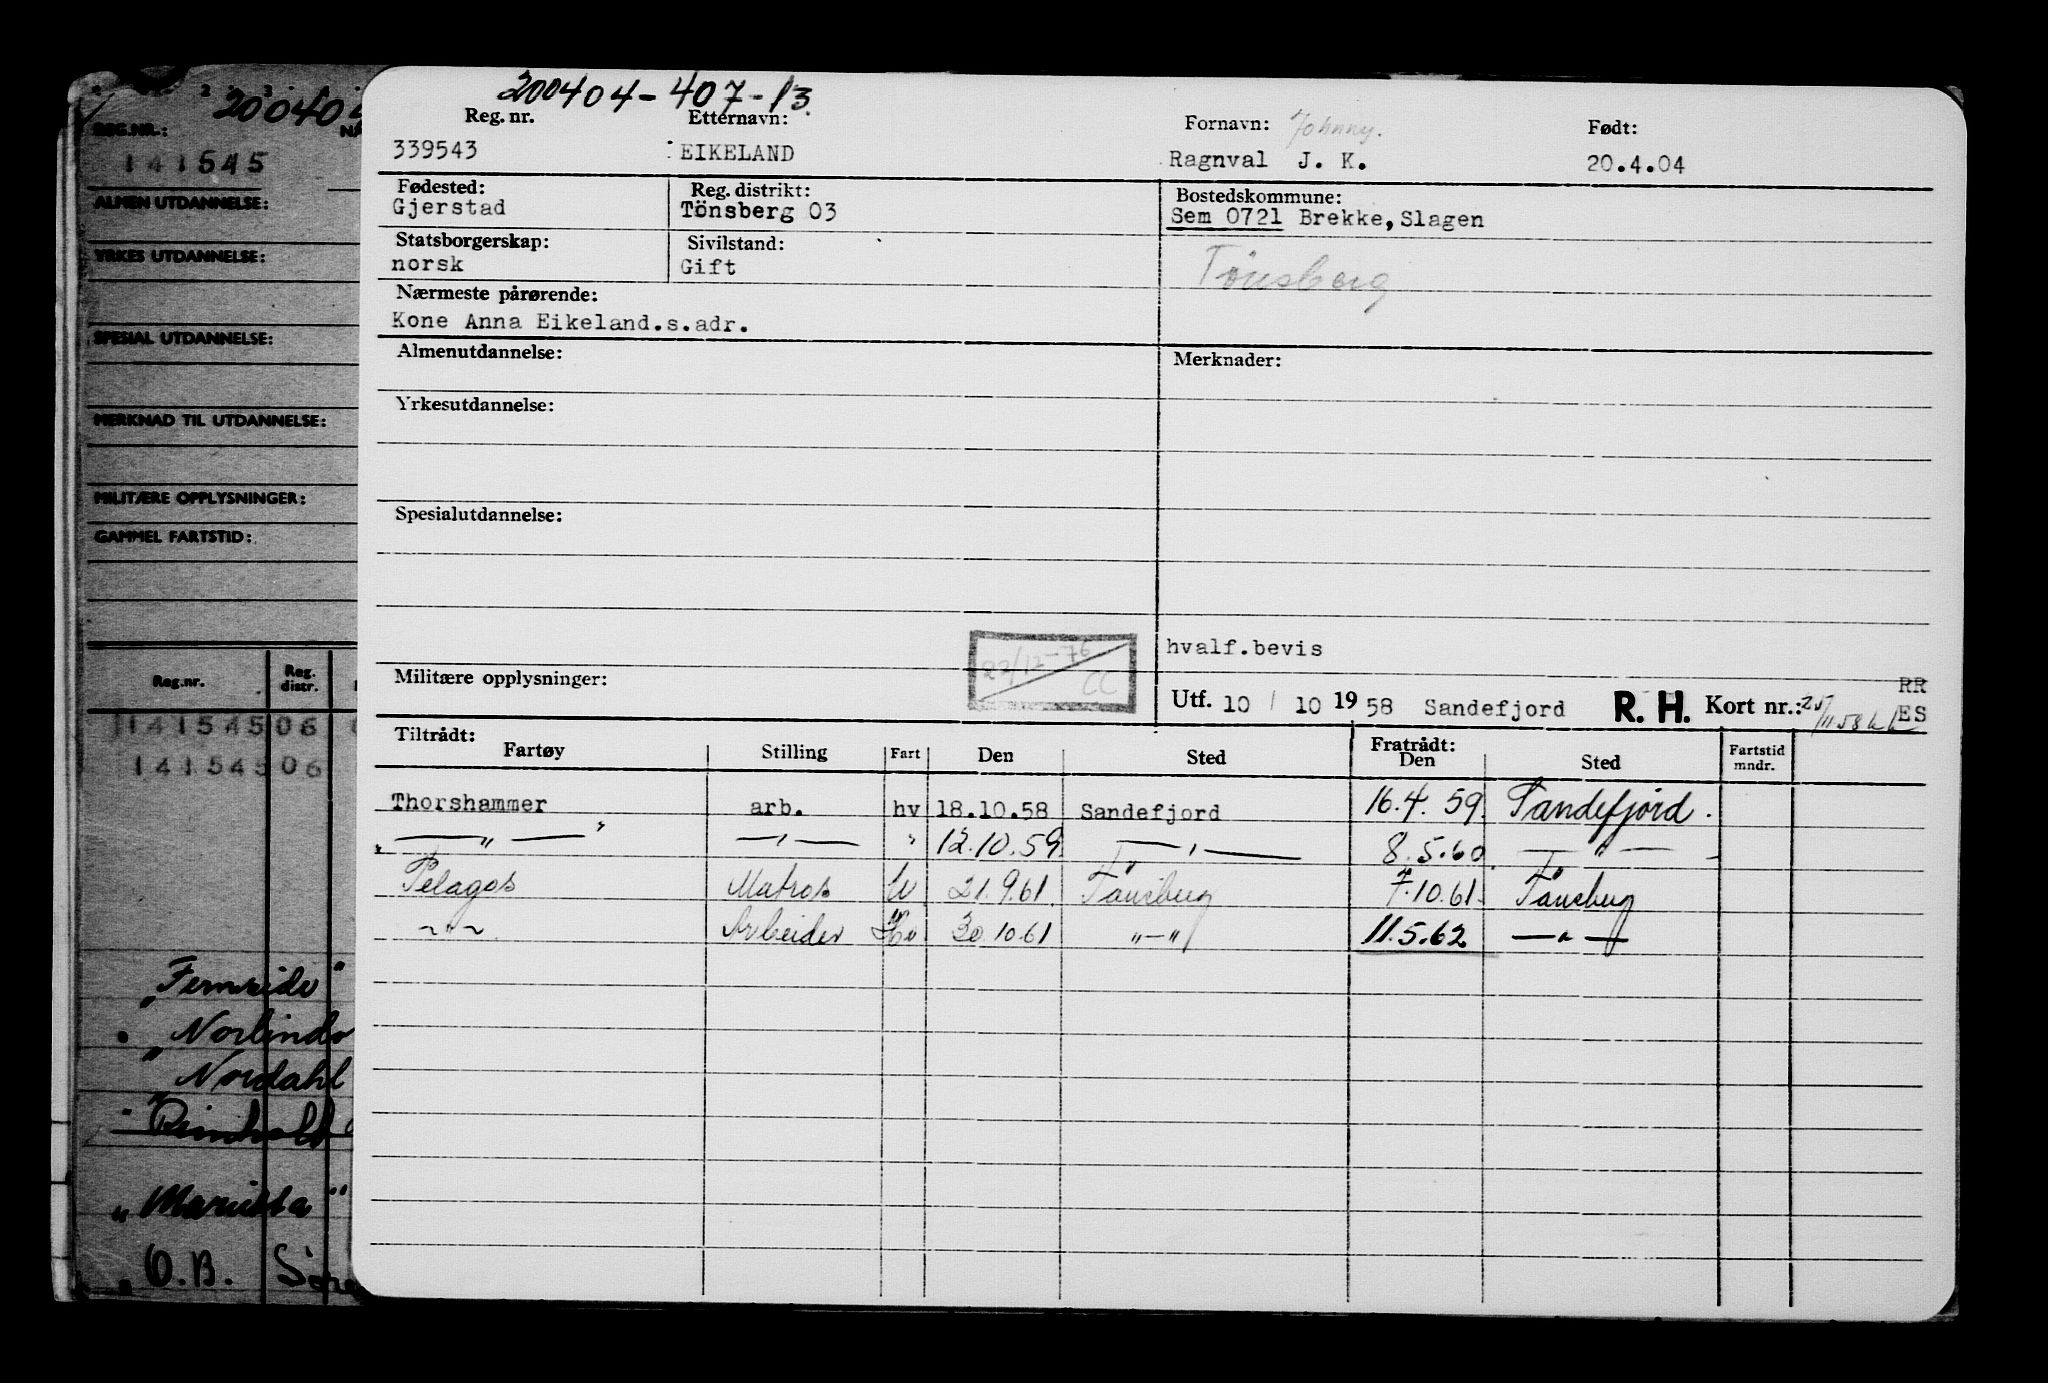 200404-407-13
Reg. nr. Etternavn: Fornavn: Johnny. Født:
339543 EIKELAND Ragnval J. K. 20.4.04
Fødested: Reg. distrikt: Bostedskommune:
Gjerstad Tönsberg 03 Sem 0721 Brekke, Slagen
Statsborgerskap: Sivilstand:
norsk Gift Tønsberg
Nærmeste pårørende:
Kone Anna Eikeland.s.adr.
Almenutdannelse: Merknader:
Yrkesutdannelse:
Spesialutdannelse:
hvalf.bevis
Militære opplysninger: 22/12-76 CC
RR
Utf. 10 / 10 19 58 Sandefjord R. H. Kort nr.: 25/11.58 ES
Tiltrådt: Fratrådt:
Fartøy Stilling Fart Den Sted Den Sted Fartstid mndr.
Thorshammer arb. hv 18.10.58 Sandefjord 16.4.59. Sandefjord.
—„— —„— " 12.10.59. —„— 8.5.60. —„—
Pelagos Matros U 21.9.61. Tönsberg 7.10.61. Tönsberg
-"- Arbeider Hv 30.10.61 "-" 11.5.62 —"—
200404
REG.NR.:
141545
ALMEN UTDANNELSE:
YRKES UTDANNELSE:
SPESIAL UTDANNELSE:
MERKNAD TIL UTDANNELSE:
MILITÆRE OPPLYSNINGER:
GAMMEL FARTSTID:
Reg.nr. Reg. distr.
141545 06
141545 06
"Nordahl
"Marietta"
"O.B.